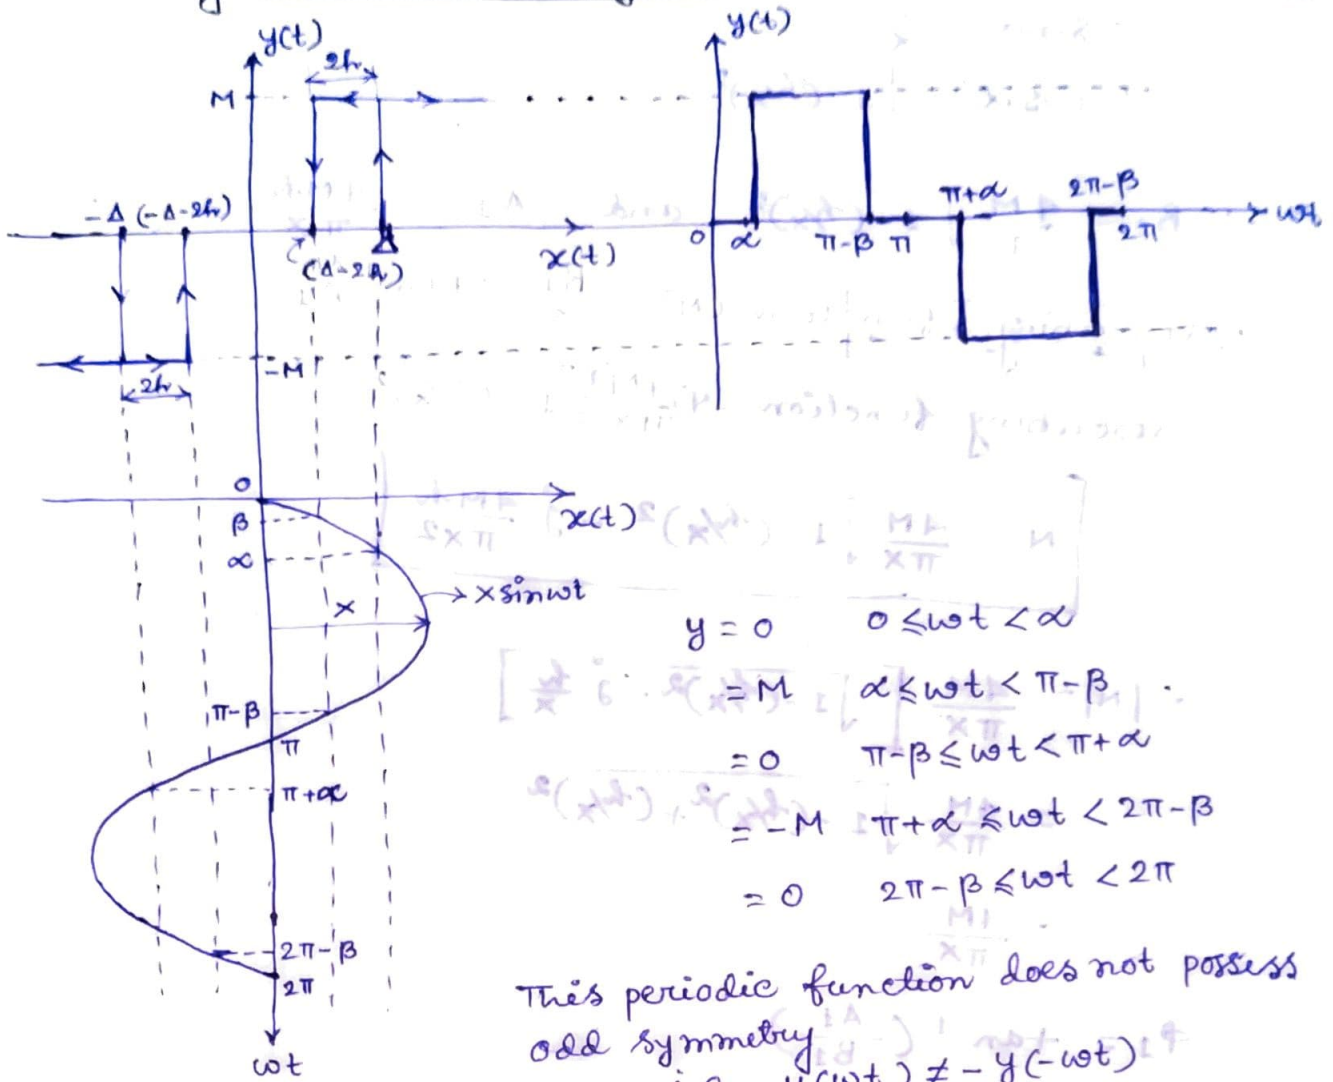 y(t)
2h
M
-Δ (-Δ-2h)
(Δ-2h)
Δ
x(t)
-M
2h
y(t)
0 α π-β π
π+α
2π-β
2π
ωt
0
β
α
x(t)
X sinωt
X
π-β
π
π+α
2π-β
2π
ωt
y = 0 0 ≤ ωt < α
= M α ≤ ωt < π-β
= 0 π-β ≤ ωt < π+α
= -M π+α ≤ ωt < 2π-β
= 0 2π-β ≤ ωt < 2π
This periodic function does not possess
odd symmetry
y(ωt) ≠ -y(-ωt)